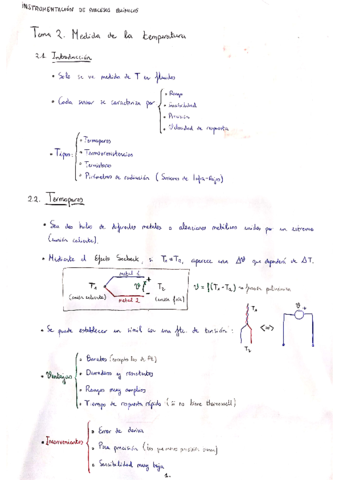 INSTRUMENTACIÓN DE PROCESOS QUÍMICOS
Tema 2. Medida de la temperatura
2.1. Introducción
• Solo se ve medida de T en fluidos
• Cada sensor se caracteriza por
• Rango
• Sensibilidad
• Precisión
• Velocidad de respuesta
• Tipos:
• Termopares
• Termorresistencias
• Termistores
• Pirómetros de radiación (Sensores de infra-rojos)
2.2. Termopares
• Son dos hilos de diferentes metales o aleaciones metálicas unidos por un extremo
(unión caliente).
• Mediante el Efecto Seebeck, si T₁ ≠ T₂, aparece una ΔV que dependerá de ΔT.
metal 1
T₁ V T₂
(unión caliente) (unión fría)
metal 2
V = f(T₁-T₂) → función polinómica
T₁
T₂
<=>
V
• Se puede establecer un símil con una fte. de tensión:
• Ventajas
• Baratos (excepto los de Pt)
• Duraderos y resistentes
• Rangos muy amplios
• Tiempo de respuesta rápido (si no tiene thermowell)
• Inconvenientes
• Error de deriva
• Poca precisión
• Sensibilidad muy baja
1.